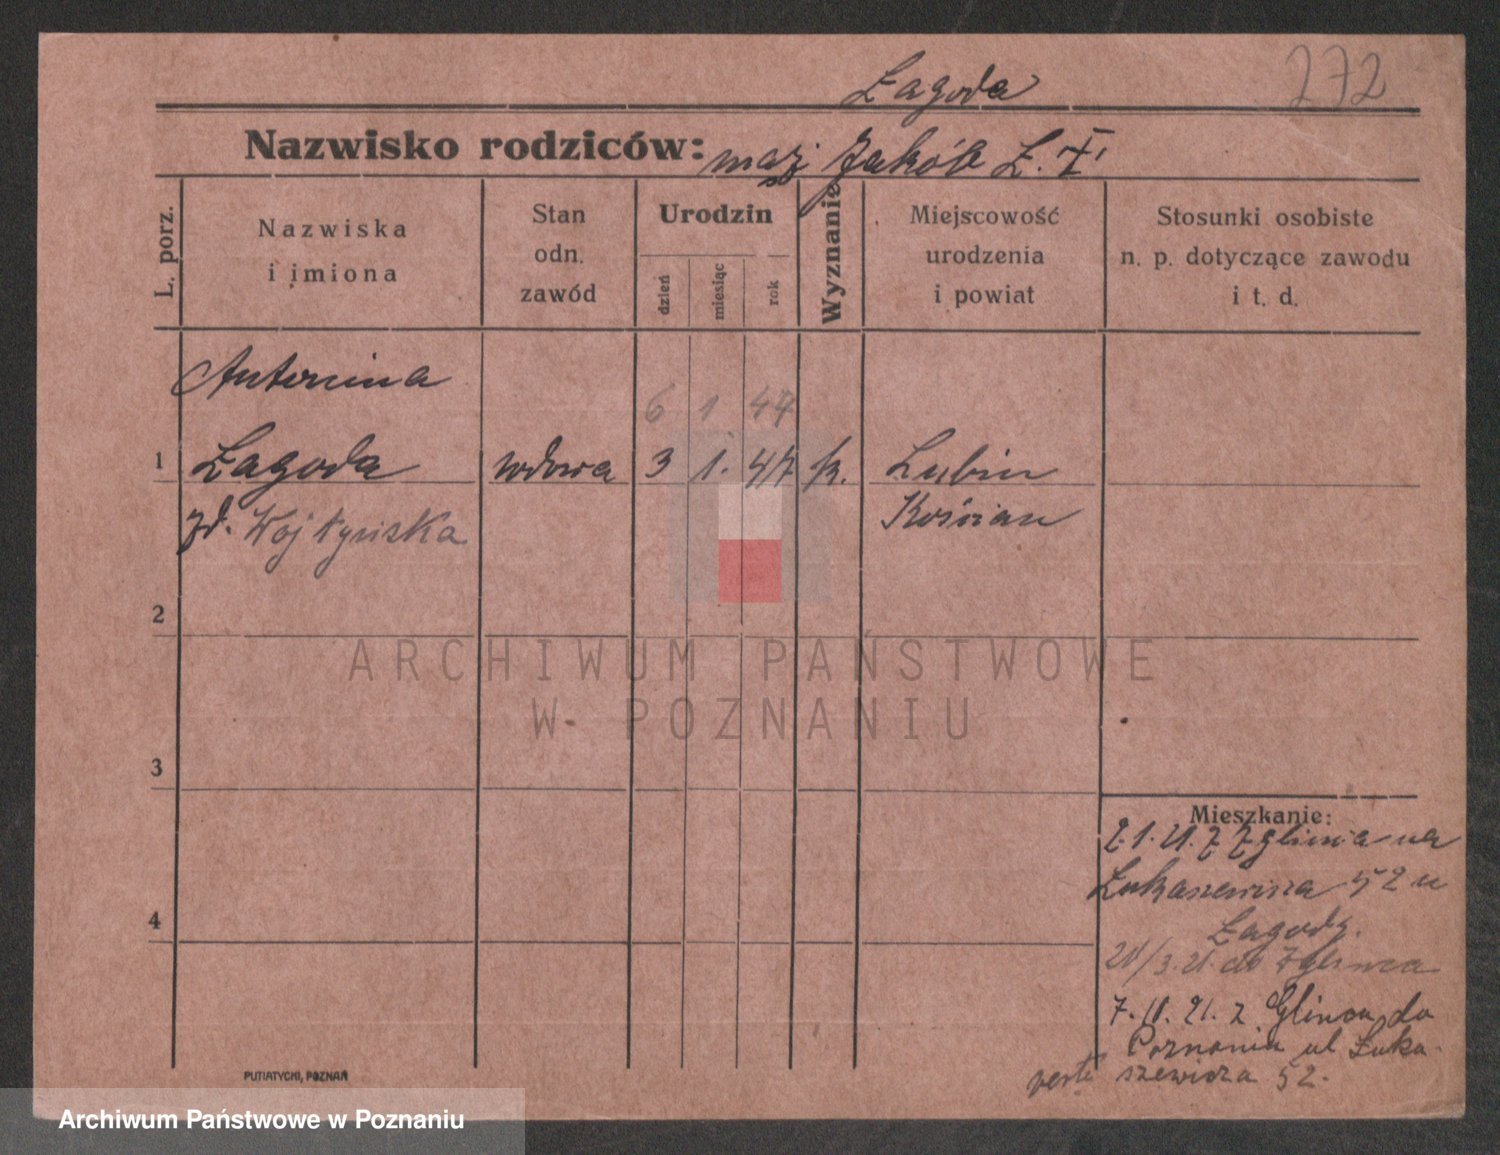 Łagoda
272
Nazwisko rodziców: mąż Jakób Ł. I
L. porz.
Nazwiska
i imiona
Stan
odn.
zawód
Urodzin
dzień
miesiąc
rok
Wyznanie
Miejscowość
urodzenia
i powiat
Stosunki osobiste
n. p. dotyczące zawodu
i t. d.
Antonina
6 1 47
1 Łagoda wdowa 3 1. 47 k. Lubin
zd. Wojtyńska Kościan
2
3
4
ARCHIWUM PAŃSTWOWE
W POZNANIU
Mieszkanie:
1. 21. z na
Łukaszewicza 52 u
Łagody.
/3. 21. do
21. z do
Poznania ul Łuka-
szewicza 52.
verte
PUTIATYCKI, POZNAŃ
Archiwum Państwowe w Poznaniu